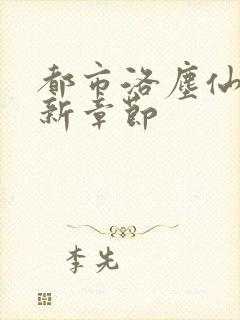 都市洛塵仙
新章節
李先